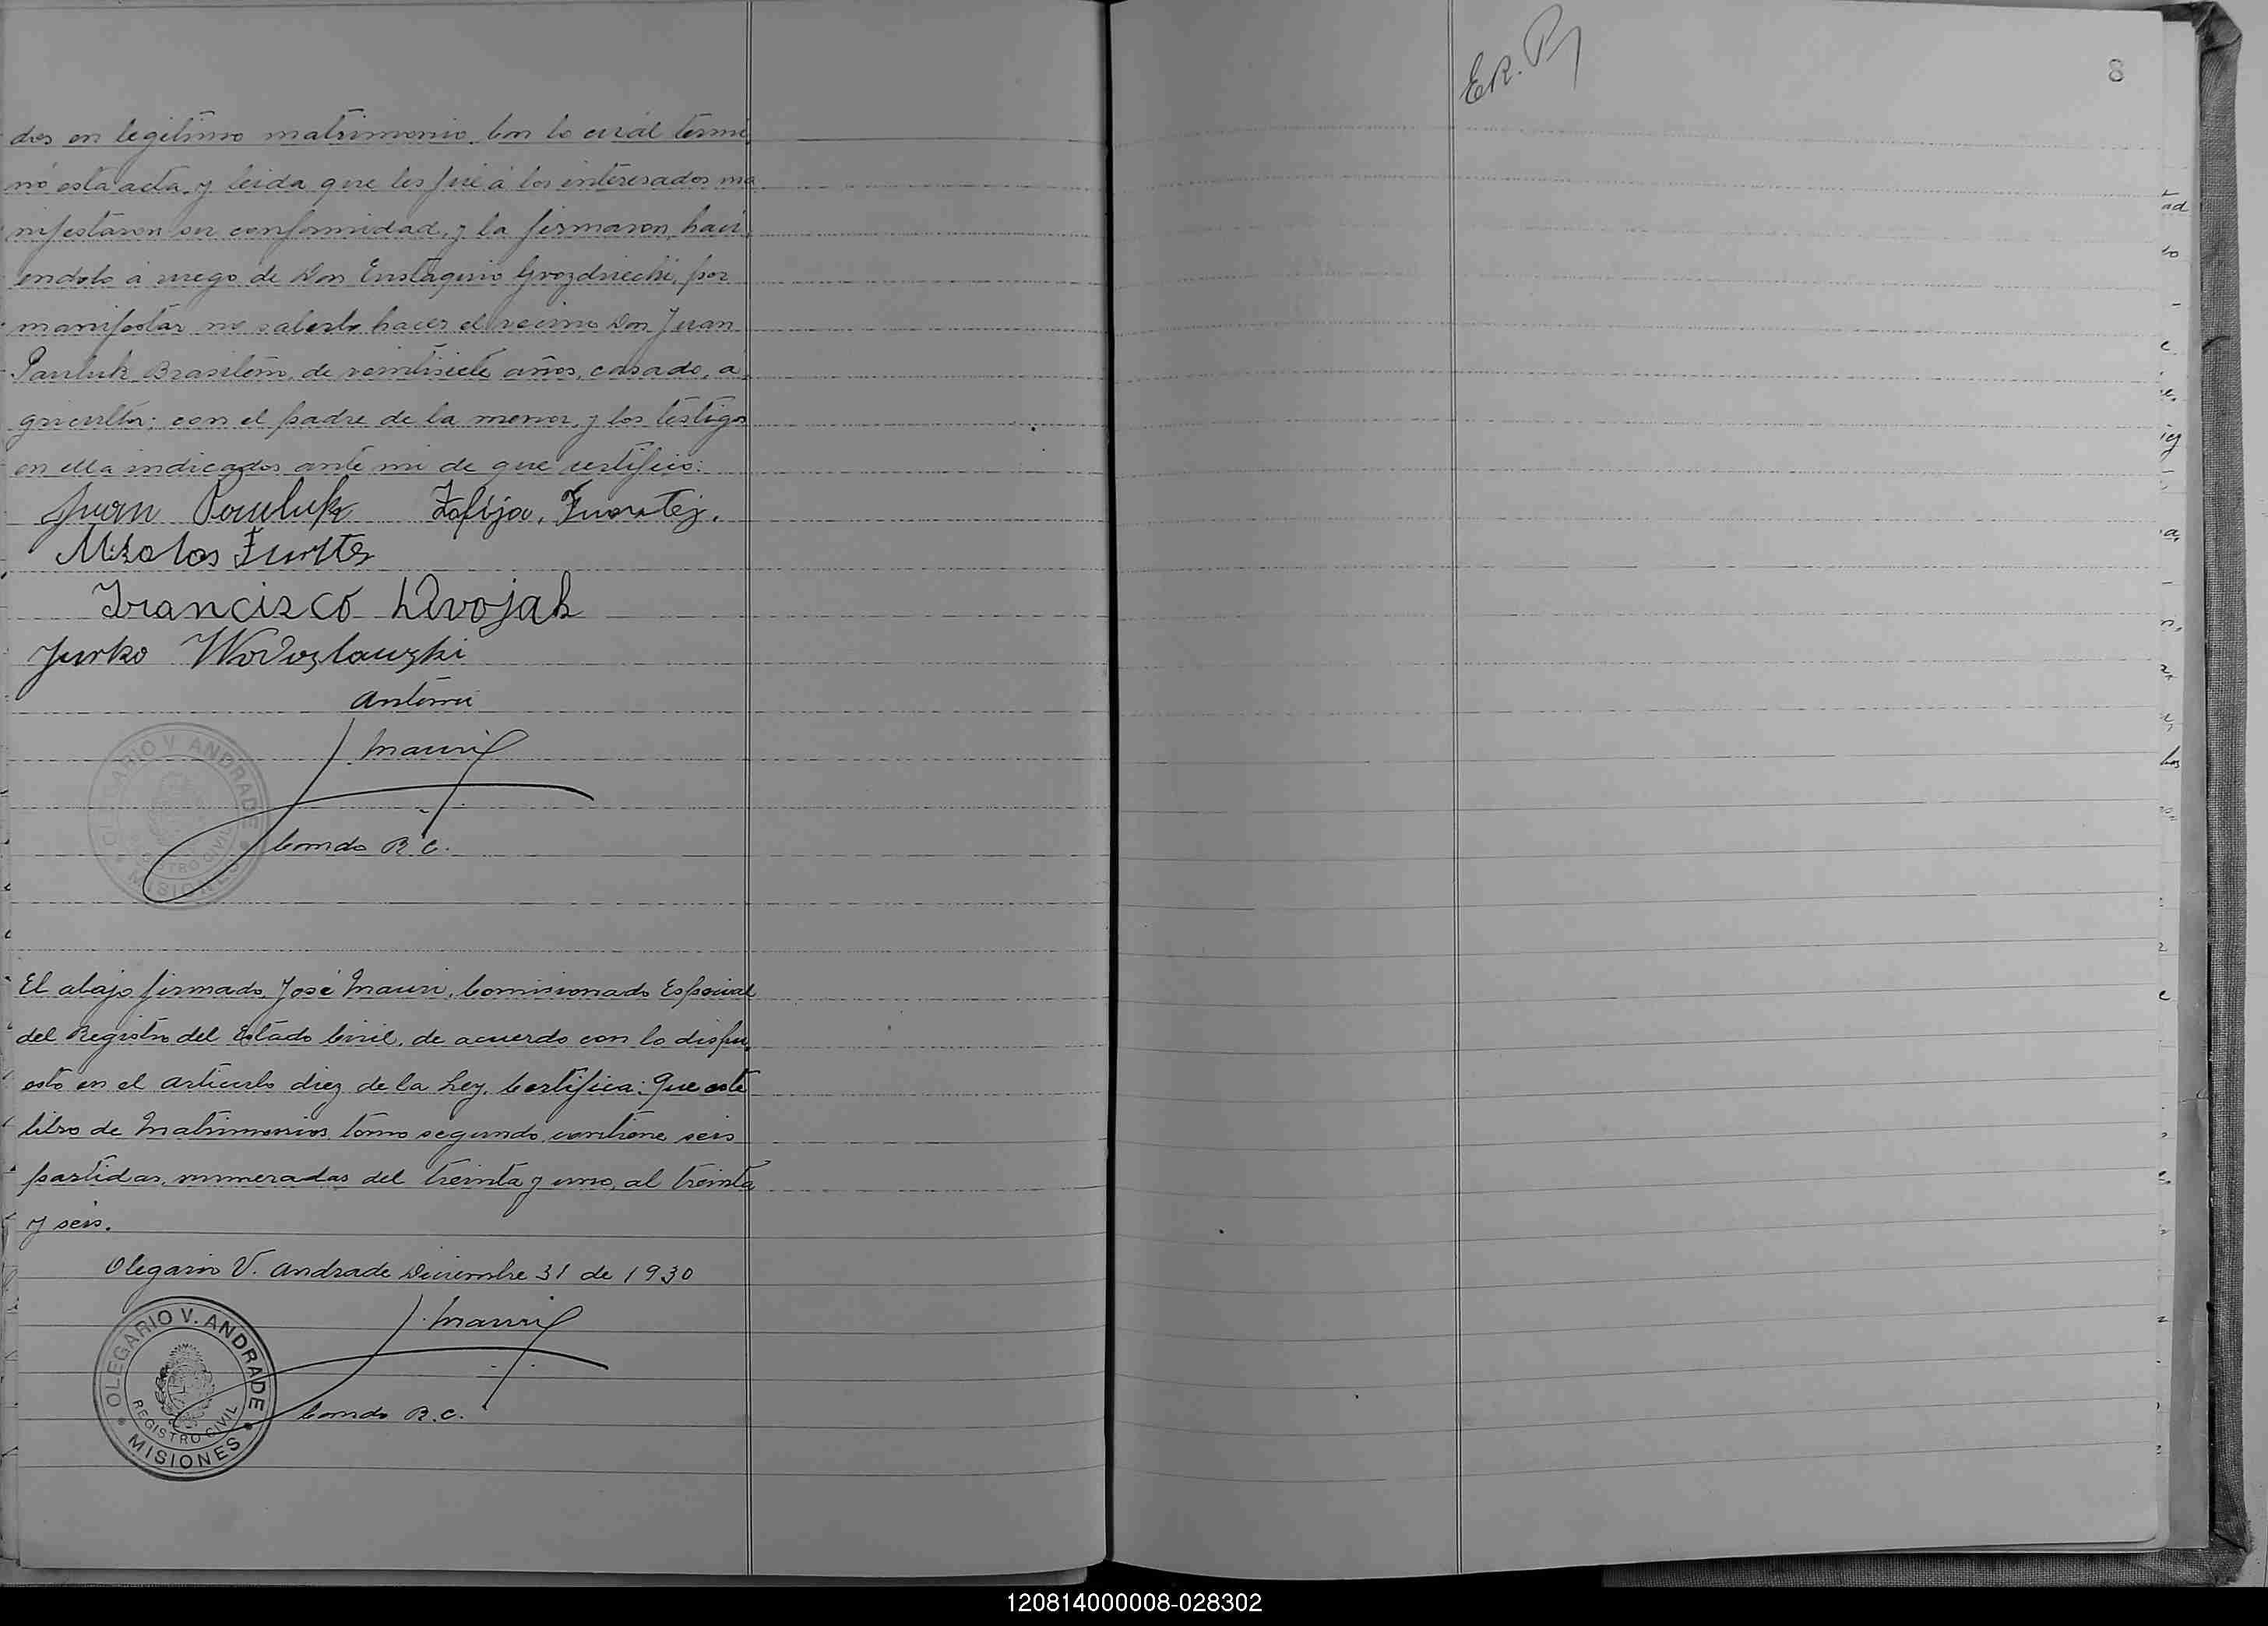 dos en legítimo matrimonio. Con lo cuál termi,
nó esta acta, y leida que les fué á los interesados ma
nifestaron su conformidad, y la firmaron, haci,
endolo á ruego de Don Eustaquio Gvozdniecki, por
manifestar no saberlo hacer el vecino Don Juan
Pauluk, Brasilero, de veintisiete años, casado, a,
gricultor; con el padre de la menor y los testigos
en ella indicados ante mi de que certifico:
Juan Pauluk Zofija,
Mikolos
Francisco Dwojak
Jurko
Ante mi
J. Mauri
OLEGARIO V. ANDRADE
REGISTRO CIVIL
MISIONES
Comdo R.C.
El abajo firmado, José Mauri, Comisionado Especial
del Registro del Estado Civil, de acuerdo con lo dispu,
esto en el articulo diez de la Ley, Certifica: Que este
libro de Matrimonios tomo segundo, contiene seis
partidas, numeradas del treinta y uno, al treinta
y seis.
Olegario V. Andrade Diciembre 31 de 1930
J. Mauri
OLEGARIO V. ANDRADE
REGISTRO CIVIL
MISIONES
Comdo R.C.
8
120814000008-028302